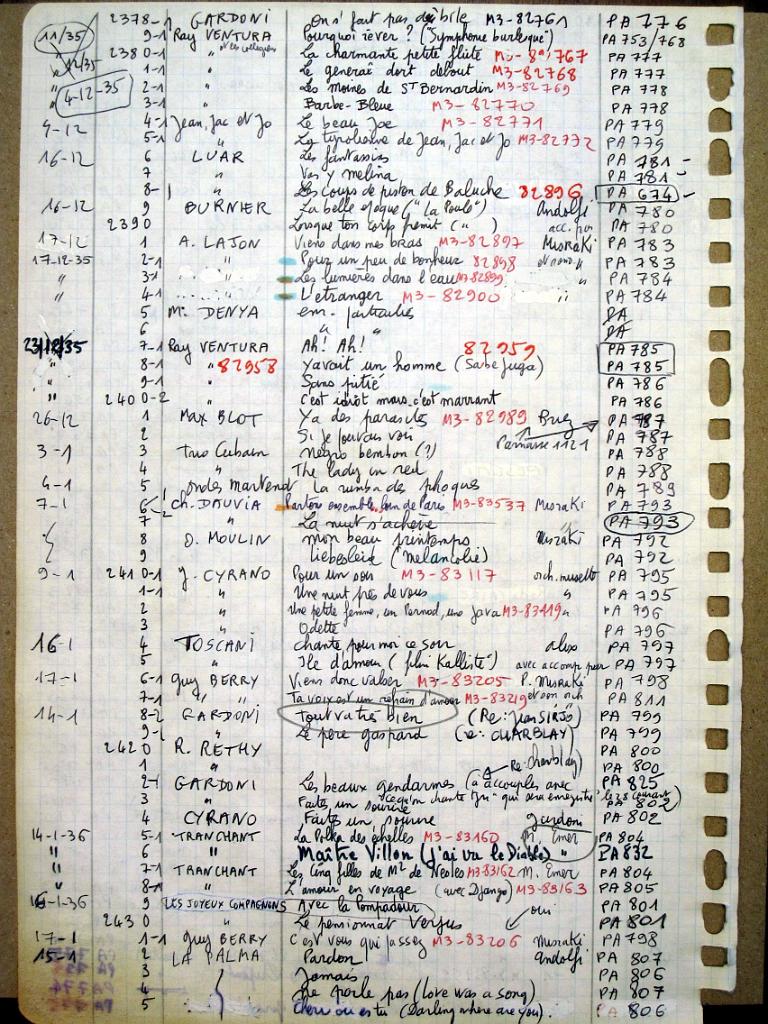 2378-1 GARDONI On s'fait pas débile M3-82761 PA 776
11/35 9-1 Ray VENTURA Pourquoi rêver? (Symphonie burlesque) PA 753/768
2380-1 " et ses collégiens La charmante petite flûte M3-82767 PA 777
12/35 1-1 " Le général dort debout M3-82768 PA 777
" 2-1 " Les moines de St Bernardin M3-82769 PA 778
4-12-35 3-1 " Barbe-Bleue M3-82770 PA 778
9-12 4-1 Jean, Jac et Jo Le beau Joe M3-82771 PA 779
5-1 " La tyrolienne de Jean, Jac et Jo M3-82772 PA 779
16-12 6 LUAR Les fantassins PA 781
7 " Vas y melina PA 781
8-1 " Les coups de piston de Baluche 82896 PA 674
16-12 9 BURNIER La belle époque ("La Poule") Andolfi PA 780
2390 Lorsque ton corps frémit ( " ) acc. par PA 780
17-12 1 A. LAJON Viens dans mes bras M3-82897 Misraki PA 783
17-12-35 2-1 " Pour un peu de bonheur 82898 PA 783
" 3-1 Les lumières dans l'eau M3-82899 PA 784
" 4-1 L'etranger M3-82900 " PA 784
5 M. DENYA em. particulies PA
6 " " PA
23/12/35 7-1 Ray VENTURA Ah! Ah! 82959 PA 785
" 8-1 " 82958 Y avait un homme PA 785
" 9-1 " Sans pitié PA 786
2400-2 C'est idiot mais c'est marrant PA 786
26-12 1 Max BLOT Ya des parasites M3-82989 PA 787
2 " Si je pouvais voir Parnasse 1121 PA 787
3-1 3 Trio Cubain Negro bembon (?) PA 788
4 " The lady in red PA 788
4-1 5 ondes martenot La rumba des phoques PA 789
7-1 6 Ch. DAUVIA Partons ensemble loin de Paris M3-83537 Misraki PA 793
7 " La nuit s'achève PA 793
8 D. MOULIN Mon beau printemps Misraki PA 792
9 Liebesleid (Melancolie) PA 792
9-1 2410-1 J. CYRANO Pour un sou M3-83117 orch. musette PA 795
1-1 " Une nuit près de vous " PA 795
2 " Une petite femme, un Pernod, une Java M3-83419 " PA 796
3 Odette PA 796
16-1 4 TOSCANI Chante pour moi ce soir alex PA 797
5 " Ile d'amour (film Kalliste") avec accomp par PA 797
17-1 6-1 Guy BERRY Viens donc valser M3-83205 P. Misraki PA 798
7-1 " " Ta voix est un refrain d'amour M3-83219 et son orch PA 811
14-1 8-2 GARDONI Tout va très bien (Re: Jean SIRJO) PA 799
9-1 " Le père gaspard (re: CHARBLAY) PA 799
2420 R. RETHY PA 800
1 " Re: Charblay PA 800
2-1 GARDONI Les beaux gendarmes (à accouples avec PA 825
"ce qu'on chante" qui sera enregistré le 28 courant)
3 " Faites un sourire PA 802
4 CYRANO Faites un sourire Gardoni PA 802
14-1-36 5-1 TRANCHANT La Polka des échelles M3-83160 M. Emer PA 804
" 6 " Maître Villon (J'ai vu le Diable) " PA 832
" 7-1 TRANCHANT Les Cinq filles de Me de Nesles M3-83162 M. Emer PA 804
" 8-1 " L'amour en voyage (avec Django) M3-83163 PA 805
16-1-36 9 LES JOYEUX COMPAGNONS Avec la Pompadour PA 801
2430 " Le pensionnat Verjus oui PA 801
17-1 1-1 Guy BERRY C'est vous qui passez M3-83206 Misraki PA 798
15-1 2 LA PALMA Pardon Andolfi PA 807
3 Jamais PA 806
4 Ne parle pas (Love was a song) PA 807
5 Chéri où es tu (Darling where are you). PA 806